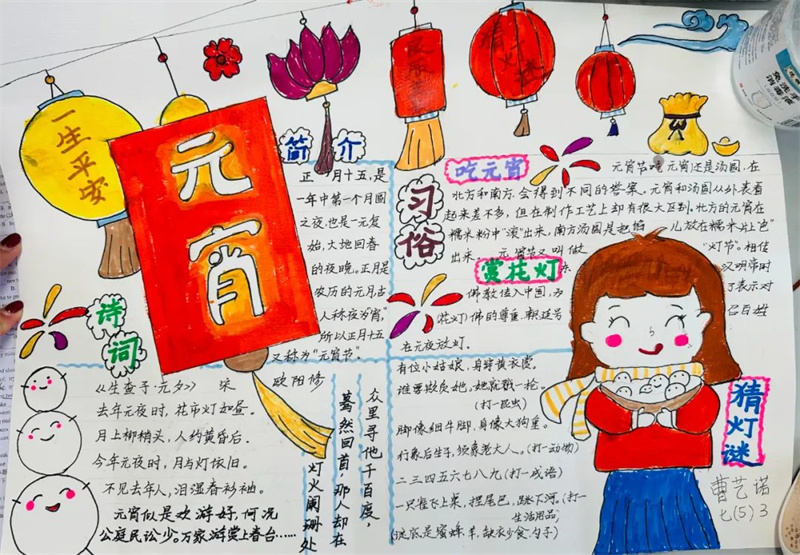 一生平安
元宵
简介
正月十五,是
一年中第一个月圆
之夜,也是一元复
始,大地回春
的夜晚。正月是
农历的元月,古
人称夜为宵,
所以正月十五
又称为“元宵节”。
习俗
吃元宵
元宵节吃元宵还是汤圆,在
北方和南方,会得到不同的答案。元宵和汤圆从外表看
起来差不多,但在制作工艺上却有很大区别。北方的元宵在
糯米粉中“滚”出来,南方汤圆是把馅
儿放在糯米片上“包”
出来。
元宵节又叫做
“灯节”。相传
汉明帝时
赏花灯
佛教传入中国,为
了表示对
佛的尊重
召百姓
在元夜放灯。
诗词
《生查子·元夕》 宋 欧阳修
去年元夜时,花市灯如昼。
月上柳梢头,人约黄昏后。
今年元夜时,月与灯依旧。
不见去年人,泪湿春衫袖。
元宵似是欢游好,何况
公庭民讼少。万家游赏上春台……
众里寻他千百度,
蓦然回首,那人却在
灯火阑珊处
猜灯谜
有位小姑娘,身穿黄衣裳。
谁要欺负她,她就戳一枪。
(打一昆虫)
脚像细牛脚,身像大狗熏。
(打一动物)
二三四五六七八九(打一成语)
(打一
生活用品)
曹艺诺
七(5) 3
免洗手
消毒液